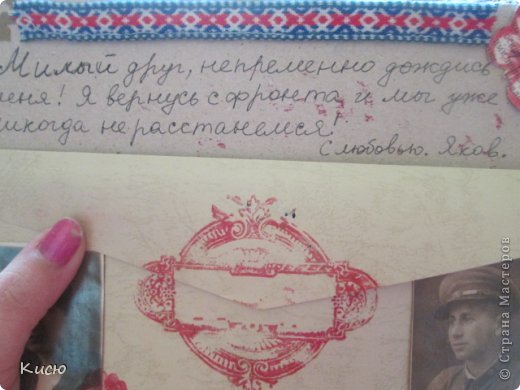 Милый друг, непременно дождись
меня! Я вернусь с фронта и мы уже
никогда не расстанемся!
С любовью. Яков.
Кисю
© Страна Мастеров